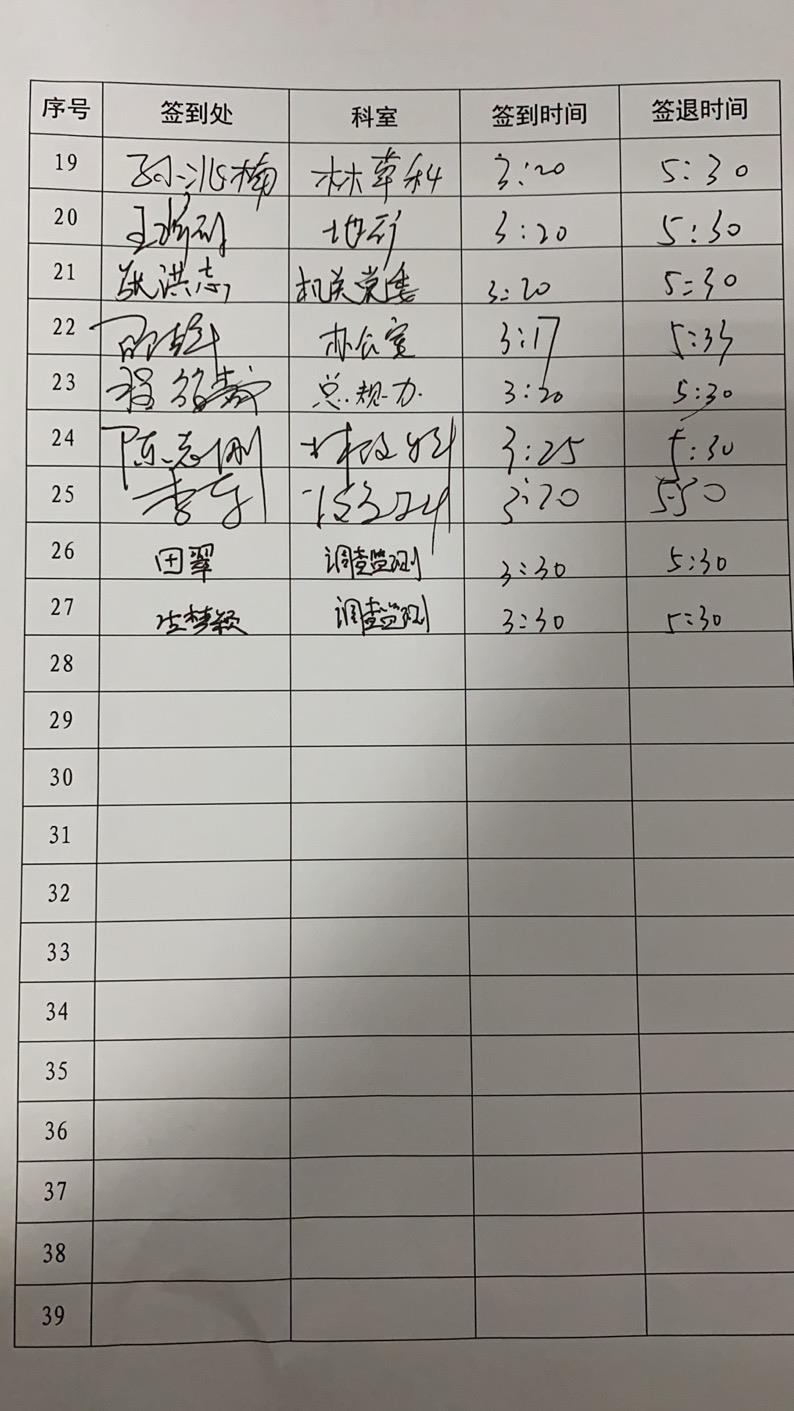 序号 签到处 科室 签到时间 签退时间
19 孙兆楠 林草科 3:20 5:30
20 王 地矿 3:20 5:30
21 张洪志 机关党委 3:20 5:30
22 办公室 3:17 5:35
23 程 总规力 3:20 5:30
24 陈志刚 3:25 5:30
25 李 3:20 5:30
26 田翠 调查监测 3:30 5:30
27 梦颖 调查监测 3:30 5:30
28
29
30
31
32
33
34
35
36
37
38
39